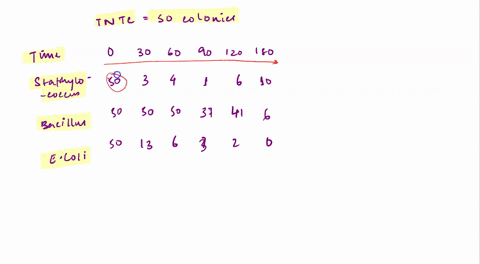 TNTC = 50 colonies
Time 0 30 60 90 120 180
Staphylo- 50 3 4 1 6 10
-coccus
Bacillus 50 50 50 37 41 6
E.Coli 50 13 6 3 2 0